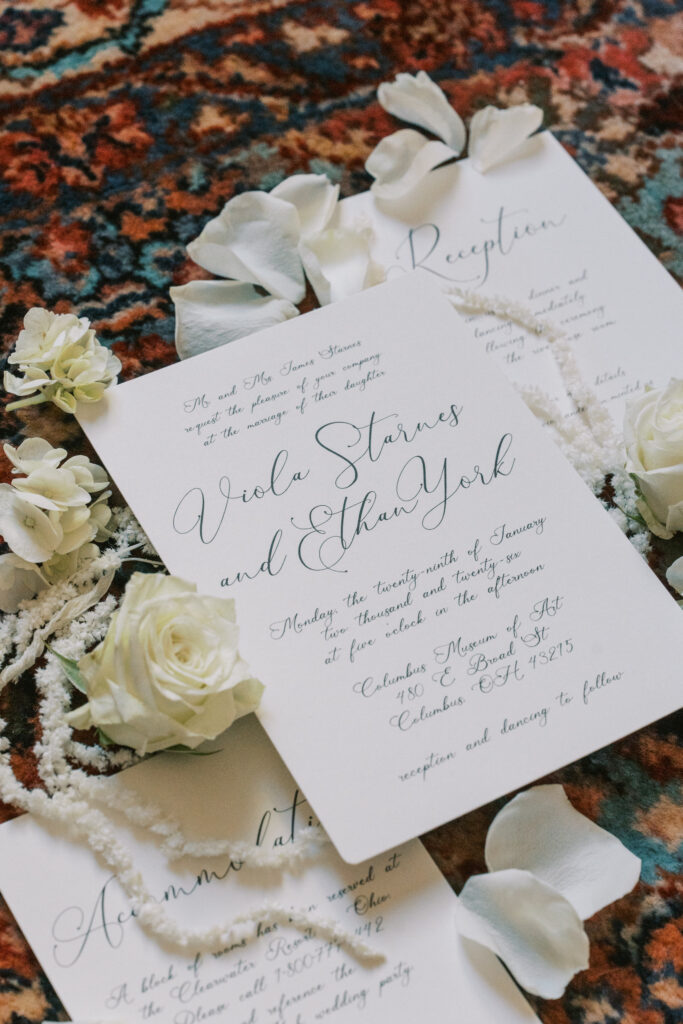 Reception
dinner and
dancing immediately
following the ceremony
the room.
details
Mr. and Mrs. James Starnes
request the pleasure of your company
at the marriage of their daughter
Viola Starnes
and Ethan York
Monday, the twenty-ninth of January
two thousand and twenty-six
at five o'clock in the afternoon
Columbus Museum of Art
480 E Broad St
Columbus, OH 43215
reception and dancing to follow
A block of rooms has been reserved at
the Clearwater Resort, Ohio.
Please call 1-800-777-
and reference the
wedding party.